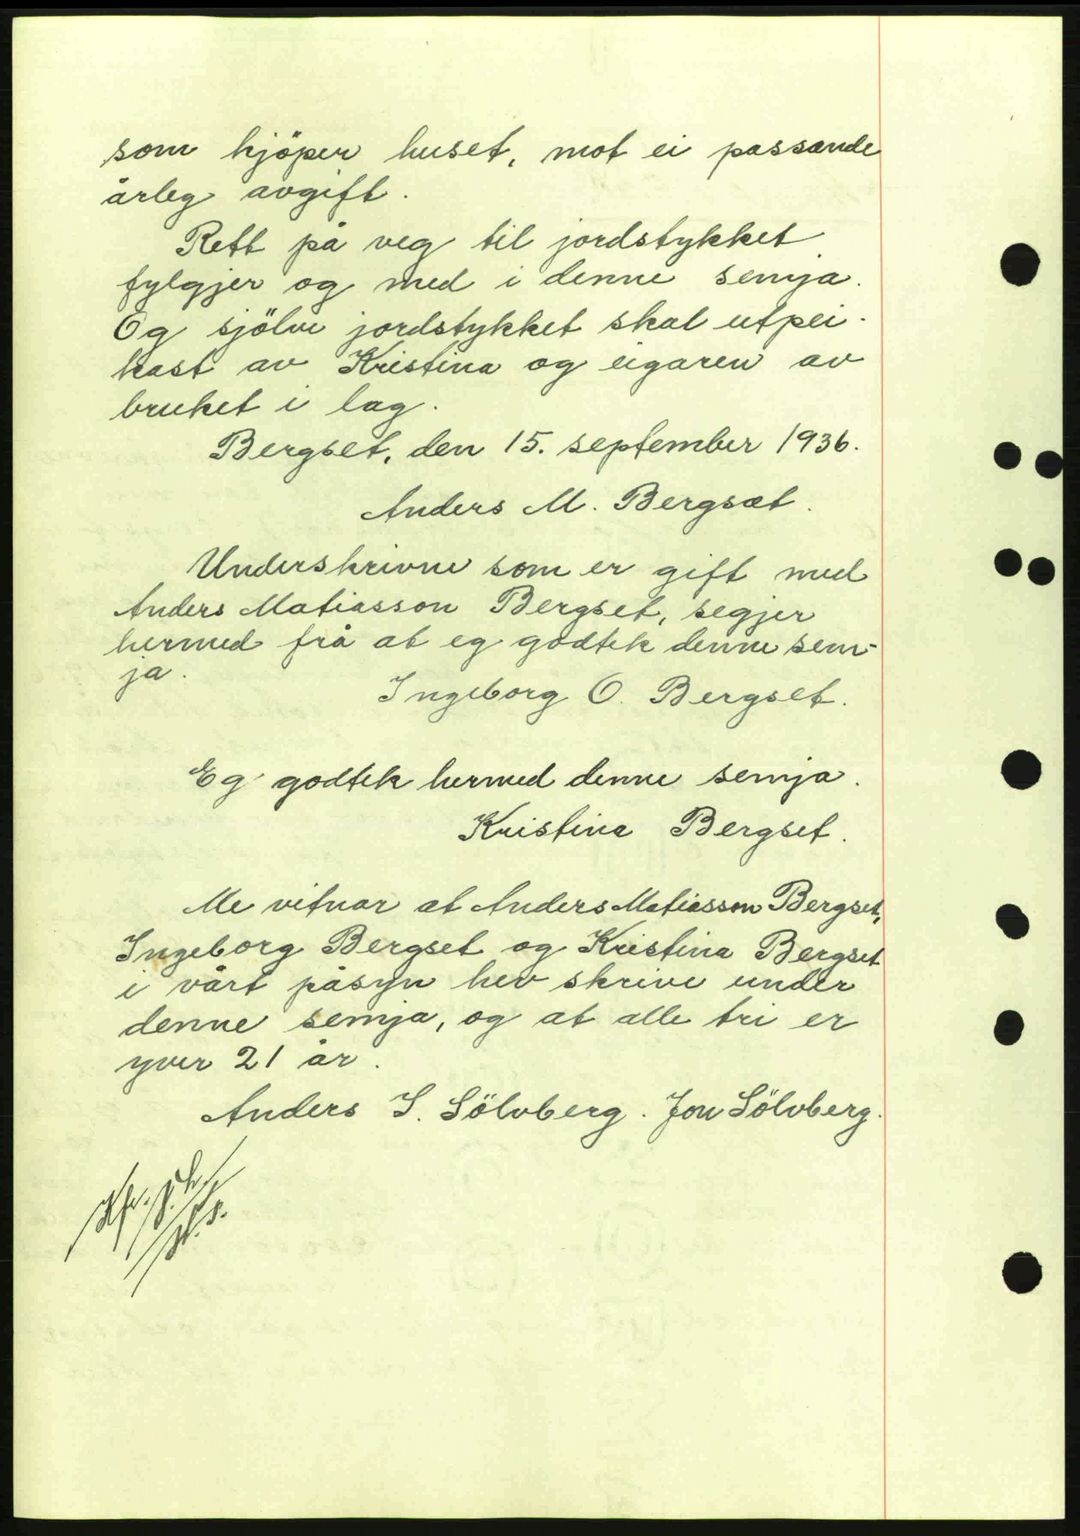 som kjöper huset, mot ei passande
årleg avgift.
Rett på veg til jordstykket
fylgjer og med i denne semja.
Og sjölve jordstykket skal utpei-
kast av Kristina og eigaren av
bruket i lag.
Bergset, den 15. september 1936.
Anders M. Bergsæt.
Underskrivne som er gift med
Anders Matiasson Bergset, segjer
hermed frå at eg godtek denne sem-
ja.
Ingeborg O. Bergset.
Eg godtek hermed denne semja.
Kristina Bergset.
Me vitnar at Anders Matiasson Bergset,
Ingeborg Bergset og Kristina Bergset
i vårt påsyn hev skrive under
denne semja, og at alle tri er
yver 21 år.
Anders S. Sölvberg. Jon Sölvberg.